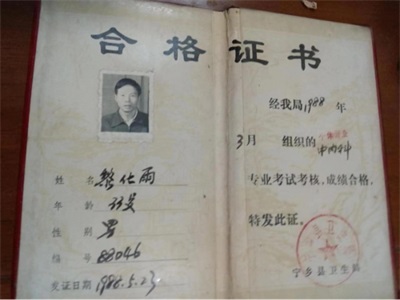 合格证书
姓名
年龄
性别 男
编号 88046
发证日期 1988.5.23
经我局1988年
3月 组织的 中内科
专业考试考核,成绩合格,
特发此证。
宁乡县卫生局